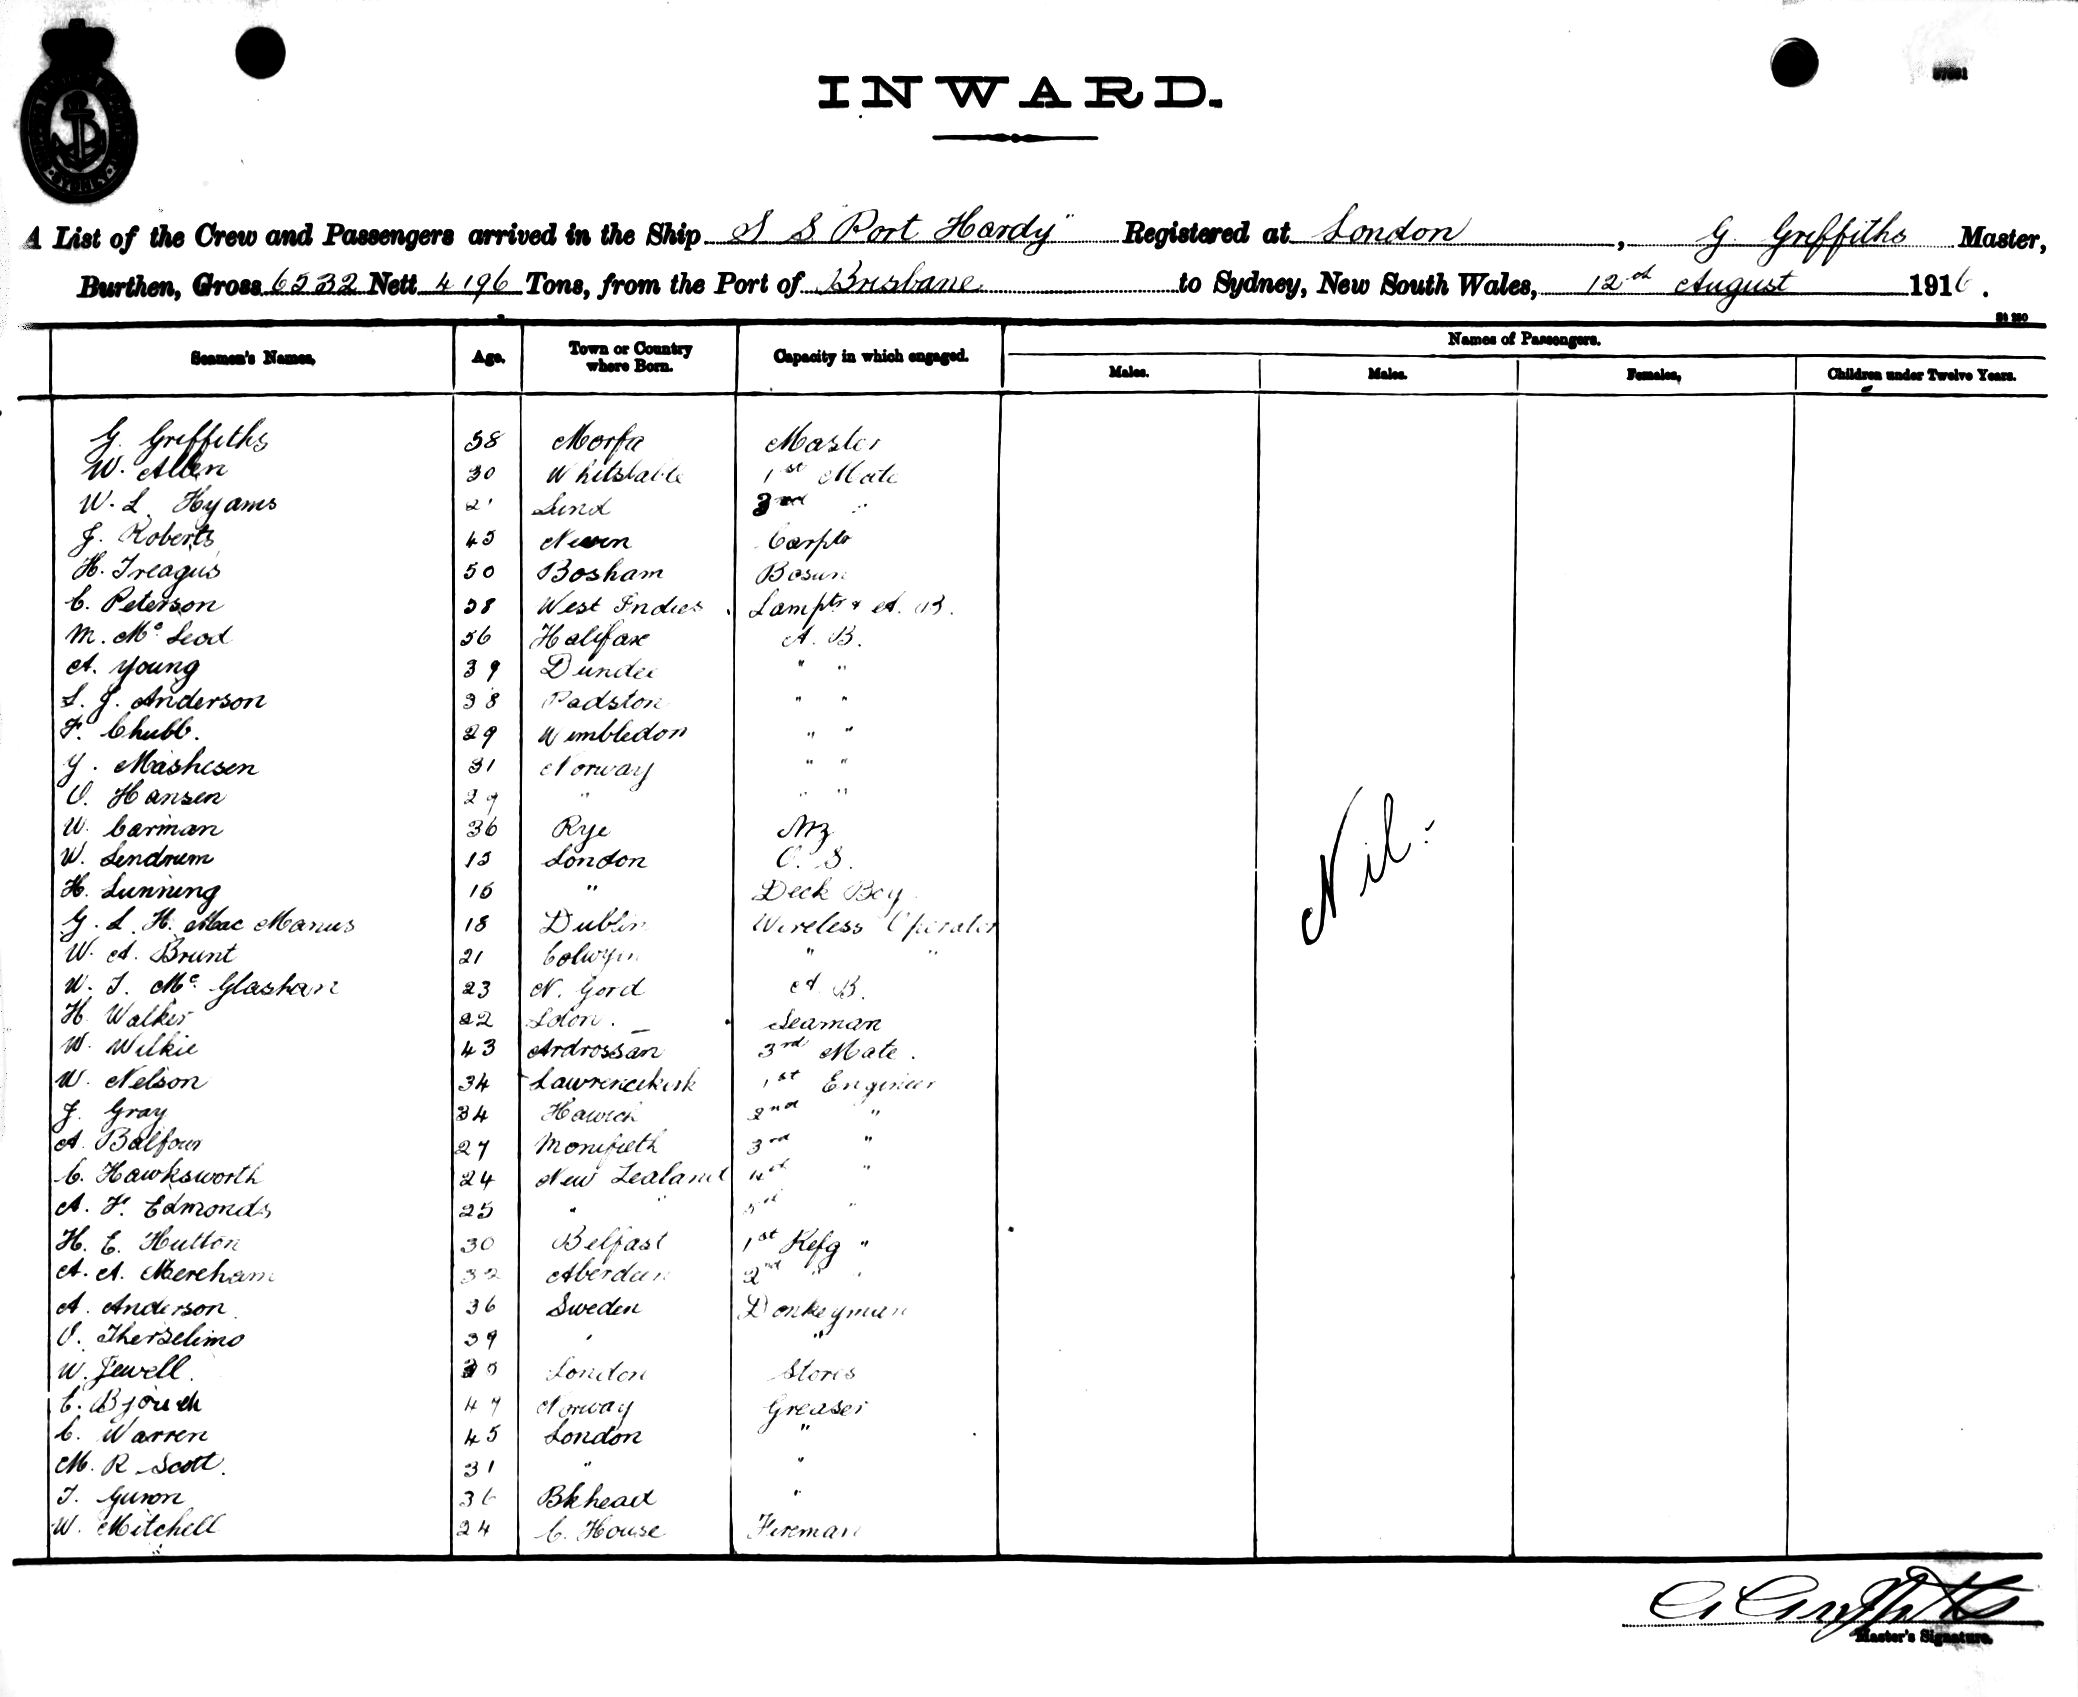 INWARD.
A List of the Crew and Passengers arrived in the Ship S S "Port Hardy" Registered at London, G. Griffiths Master,
Burthen, Gross 6532 Nett 4196 Tons, from the Port of Brisbane to Sydney, New South Wales, 12th August 1916.
Names of Passengers.
Seamen's Names. Age. Town or Country where Born. Capacity in which engaged. Males. Males. Females. Children under Twelve Years.
G. Griffiths 58 Morfa Master
W. Allen 30 Whitstable 1st Mate
W. L. Hyams 21 Lund 3rd "
J. Roberts 45 Neven Carptr
H. Treagus 50 Bosham Bosun
C. Peterson 38 West Indies Lamptr & A. B.
M. Mc Leod 56 Halifax A. B.
A. Young 39 Dundee " "
L. J. Anderson 38 Padston " "
F. Chubb. 29 Wimbledon " "
G. Mashesen 31 Norway " "
O. Hansen 29 " " "
W. Carman 36 Rye
W. Lendrum 15 London O. S.
H. Lunning 16 " Deck Boy
G. L. H. Mac Manus 18 Dublin Wireless Operator
W. A. Brunt 21 Colwyn " "
W. T. Mc Glashan 23 N. Gord A. B.
H. Walker 22 Ldon. Seaman
W. Wilkie 43 Ardrossan 3rd Mate.
W. Nelson 34 Lawrencekirk 1st Engineer
J. Gray 34 Hawick 2nd "
A. Balfour 27 Monifieth 3rd "
C. Hawksworth 24 New Zealand 4th "
A. F. Edmonds 25 " " 5th "
H. E. Hutton 30 Belfast 1st Refg "
A. A. Mereham 32 Aberdeen 2nd " "
A. Anderson 36 Sweden Donkeyman
O. Therselimo 39 " "
W. Jewell. London Stores
C. 47 Norway Greaser
C. Warren 45 London "
M. R Scott. 31 " "
T. Guron 36 Bkhead "
W. Mitchell 24 C. House Fireman
Nil.
G Griffiths
Master's Signature.